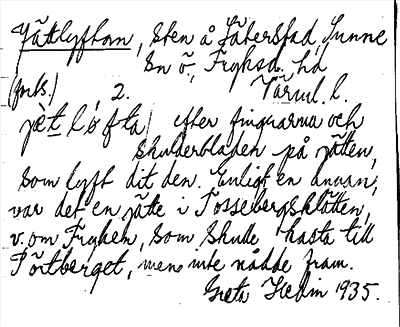 Jättlyftan, sten å Säterstad, Sunne
sn ö, Fryksd. hd
(forts.) , 2. Värml. l.
jät löfta / efter fingrarna och
skulderbladen på jätten,
som lyft dit den. Enligt en annan,
var det en jätte i Tossebergsklätten,
v. om Fryken, som skulle kasta till
Törtberget, mens inte nådde fram.
Greta Hedin 1935.